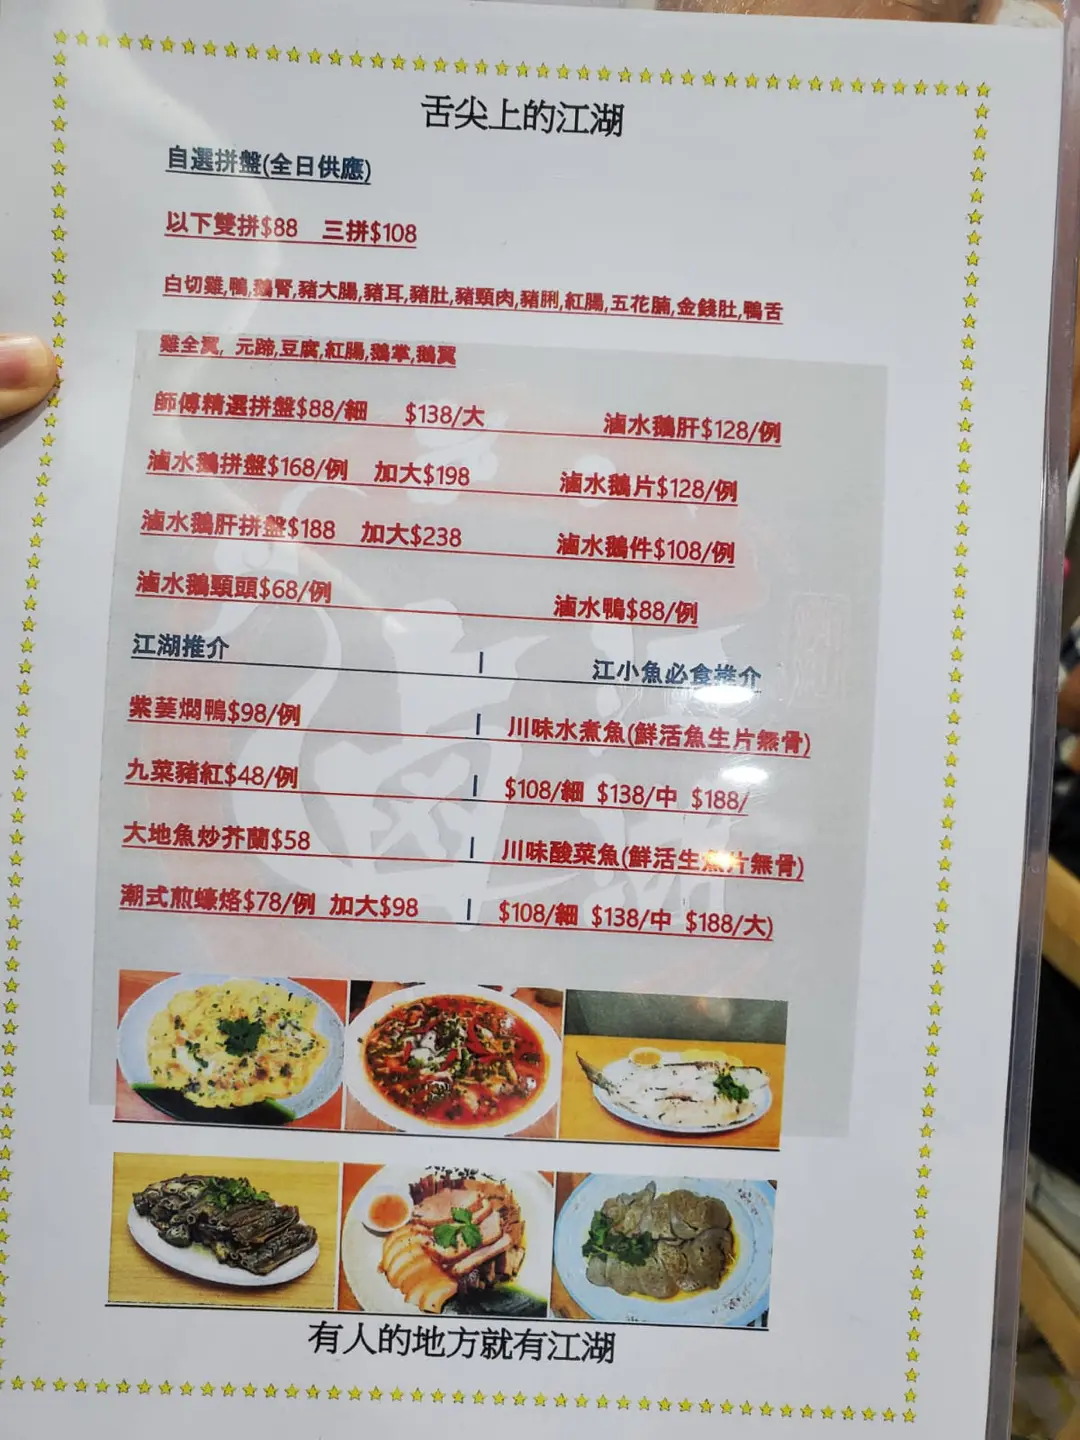 舌尖上的江湖
自選拼盤(全日供應)
以下雙拼$88 三拼$108
白切雞,鴨,鵝腎,豬大腸,豬耳,豬肚,豬頸肉,豬脷,紅腸,五花腩,金錢肚,鴨舌
雞全翼, 元蹄,豆腐,紅腸,鵝掌,鵝翼
師傅精選拼盤$88/細 $138/大 滷水鵝肝$128/例
滷水鵝拼盤$168/例 加大$198 滷水鵝片$128/例
滷水鵝肝拼盤$188 加大$238 滷水鵝件$108/例
滷水鵝頸頭$68/例 滷水鴨$88/例
江湖推介 | 江小魚必食推介
紫蒌燜鴨$98/例 | 川味水煮魚(鮮活魚生片無骨)
九菜豬紅$48/例 | $108/細 $138/中 $188/
大地魚炒芥蘭$58 | 川味酸菜魚(鮮活生魚片無骨)
潮式煎蠔烙$78/例 加大$98 | $108/細 $138/中 $188/大)
有人的地方就有江湖